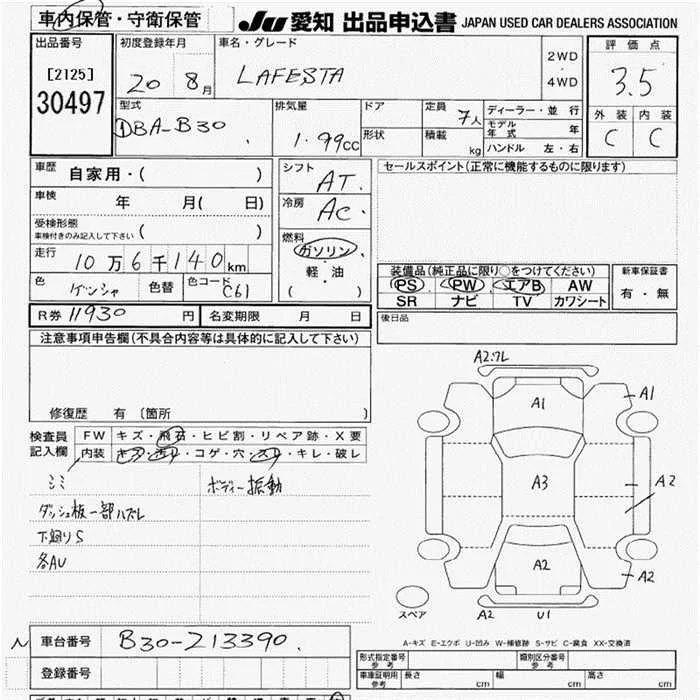 車内保管・守衛保管 JU 愛知 出品申込書 JAPAN USED CAR DEALERS ASSOCIATION
出品番号 初度登録年月 車名・グレード 評価点
[2125] 20 8月 LAFESTA 2WD・4WD 3.5
30497 型式 排気量 ドア 定員 7人 ディーラー・並行 外装 内装
DBA-B30 1.99cc 形状 積載 kg モデル年式 年 C C
ハンドル 左・右
車歴 自家用・( ) シフト AT. セールスポイント(正常に機能するものに限ります)
車検 年 月( 日) 冷房 AC.
受検形態 車検付きのみ記入して下さい ( )
燃料 ガソリン・軽・油 ( )
走行 10万6千140km 装備品(純正品に限り○をつけてください) 新車保証書
色 ゲンシャ 色替 色コード C61 PS PW エアB AW 有・無
SR ナビ TV カワシート
R券 11930 円 名変期限 月 日 後日品
注意事項申告欄(不具合内容等は具体的に記入して下さい)
修復歴 有 〔箇所 〕
検査員記入欄 FW キズ・飛石・ヒビ割・リペア跡・X要
内装 キズ・汚れ・コゲ・穴・スレ・キレ・破レ
シミ ボディー振動
ダッシュ板一部ハズレ
下廻りS
各AU
A2:フレ
A1 A1
A3 A2
A2 A2
スペア A2 U1
A-キズ E-エクボ U-凹み W-補修跡 S-サビ C-腐食 XX-交換済
車台番号 B30-213390.
登録番号
形式指定番号 参考 類別区分番号 参考
車庫証明用 参考 長さ cm 幅 cm 高さ cm